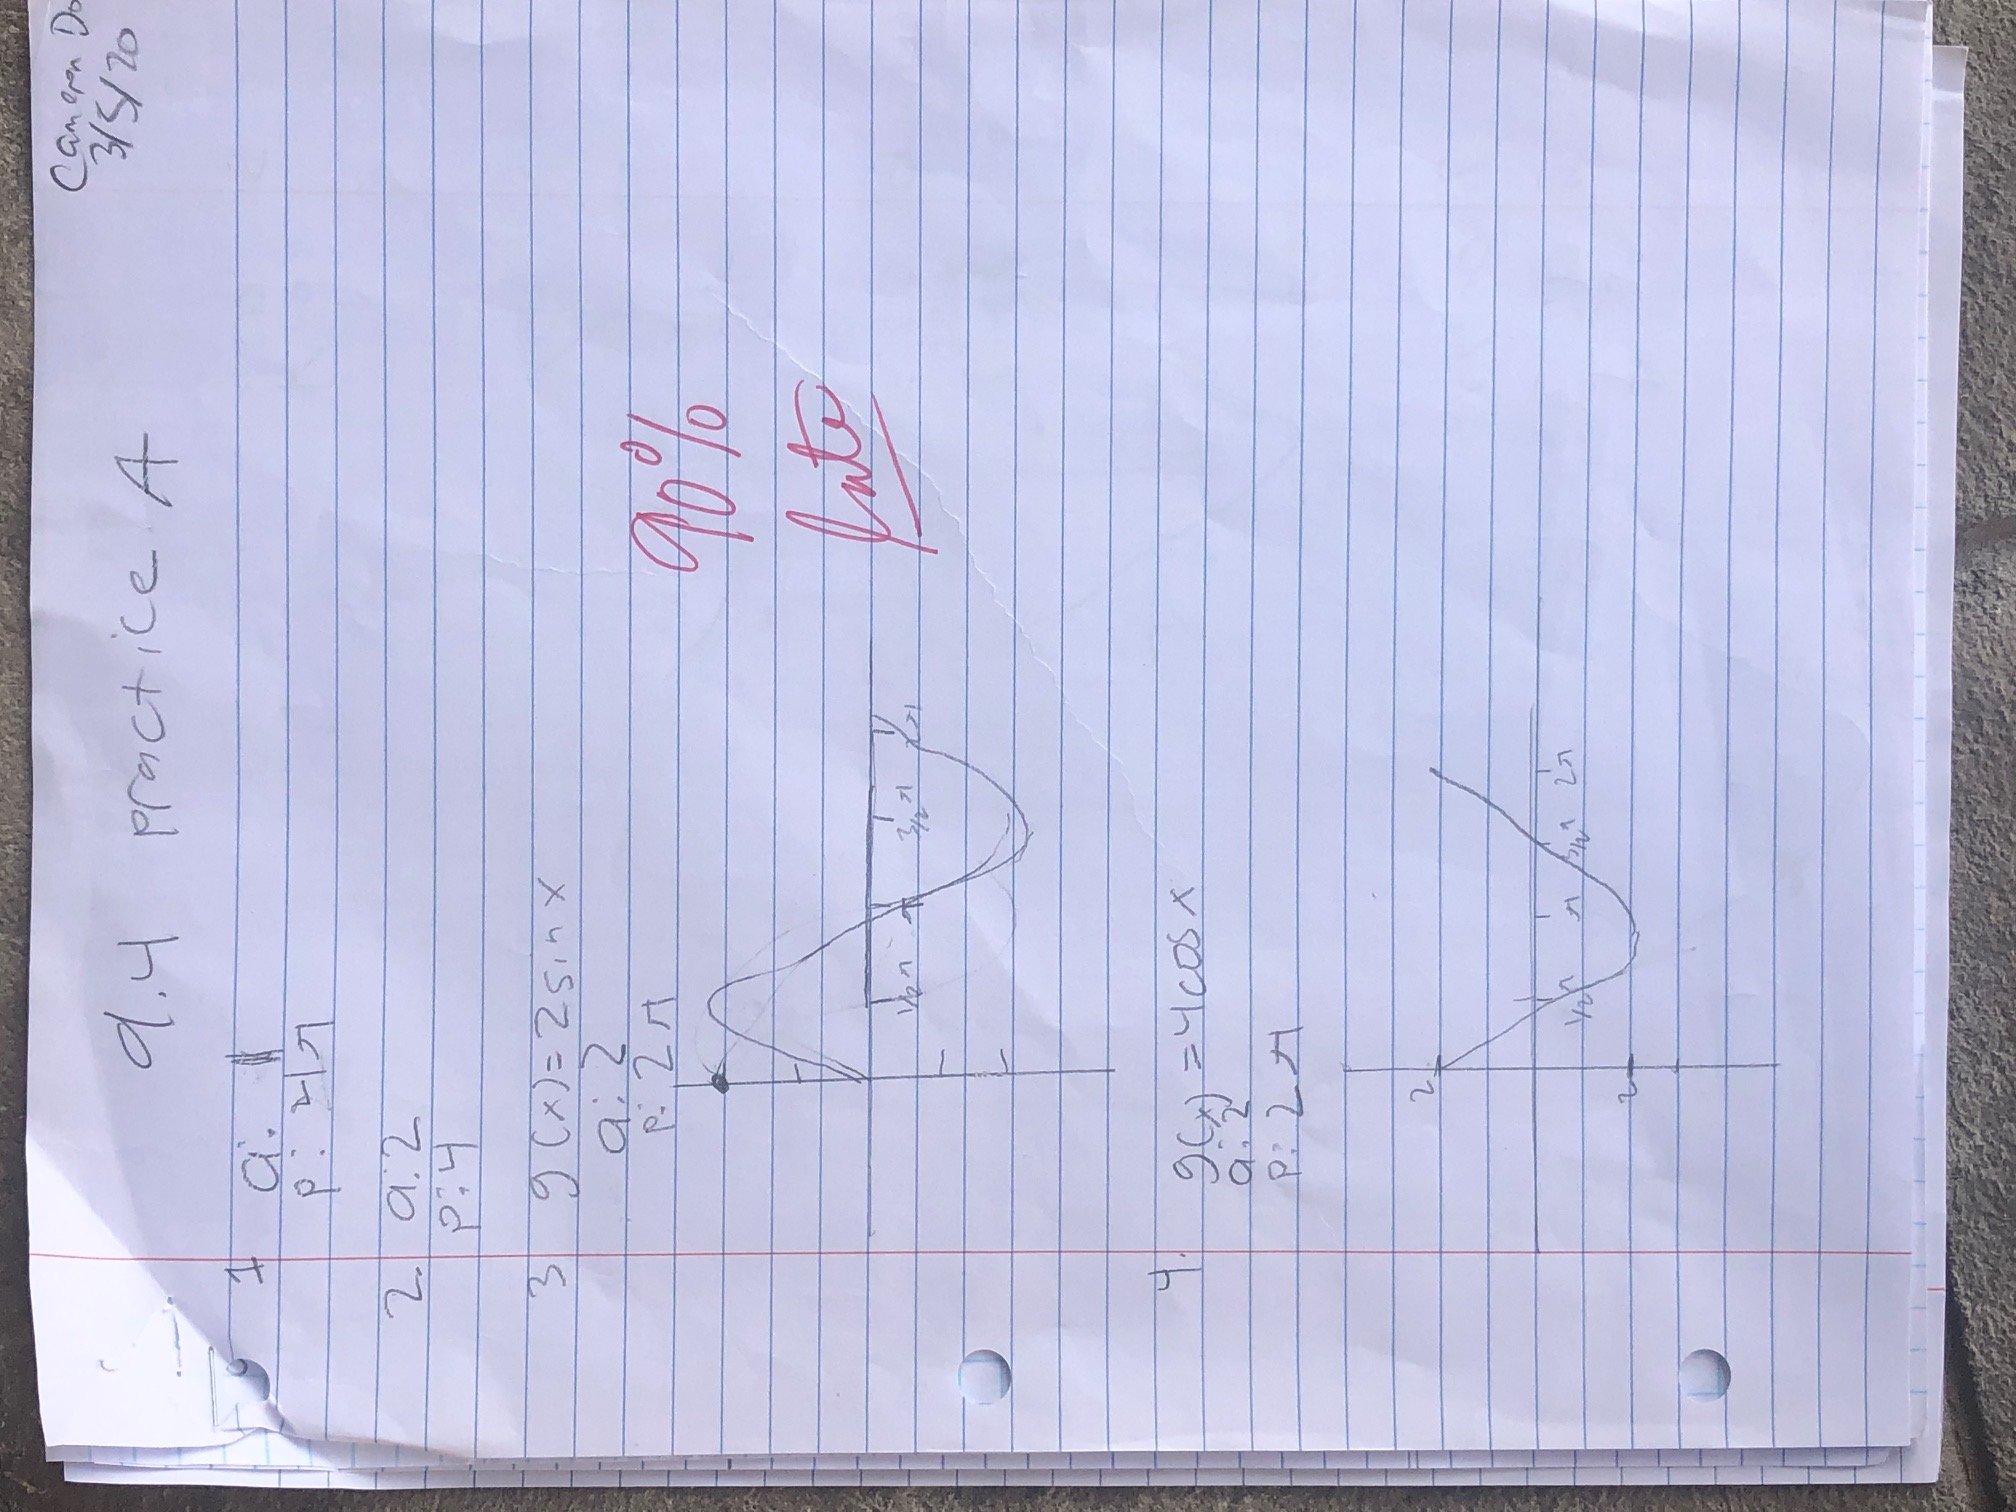 Cameron Do
3/5/20
9.4 practice A
1 a: 1
p: 2π
2. a: 2
p: 4
3 g(x)=2sinx
a: 2
p: 2π
90%
late
1/2π π 3/2π 2π
4. g(x)=4cosx
a: 2
p: 2π
2
1/2π π 3/2π 2π
2